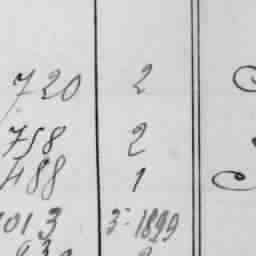 720 2
758 2
488 1
1013 3- 1899